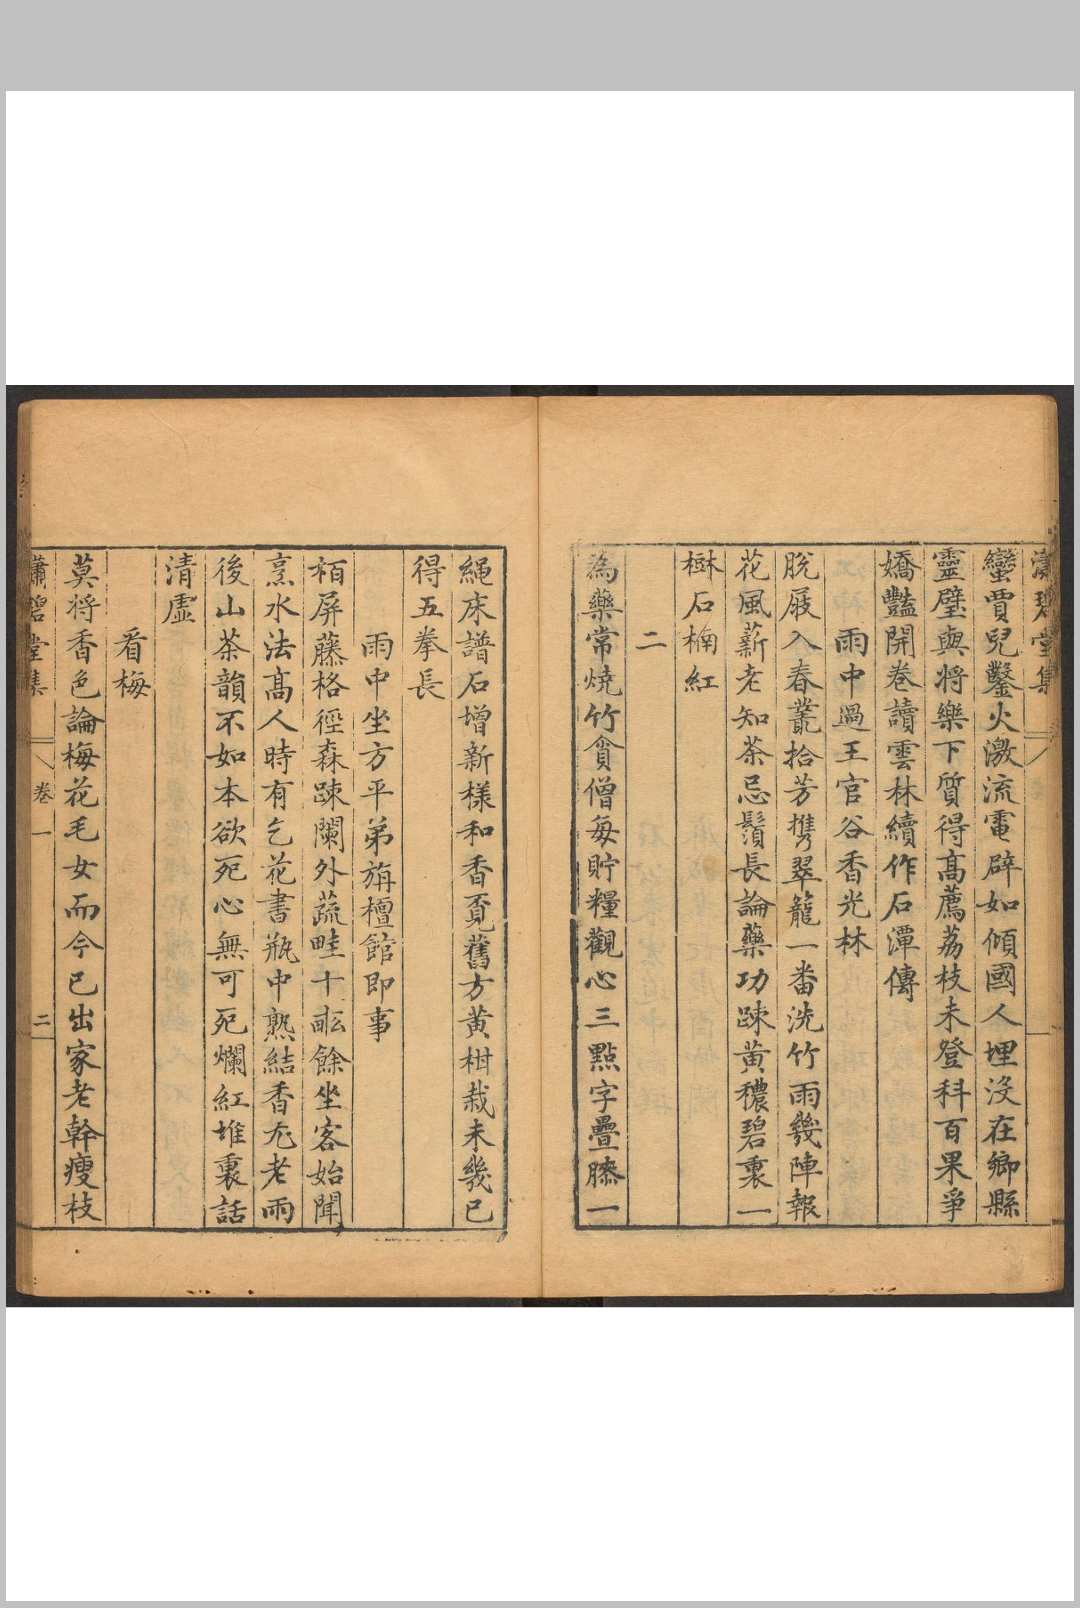 瀟碧堂集
蠻賈兒鑿火激流電辟如傾國人埋沒在鄉縣
靈璧與將樂下質得髙薦荔枝未登科百果爭
嬌豔開巻讀雲林續作石潭傳
雨中過王官谷香光林
脫屐入春叢拾芳携翠籠一番洗竹雨幾陣報
花風薪老知茶忌鬚長論藥功踈黃穠碧裏一
樹石楠紅
二
為藥常燒竹貧僧每貯糧觀心三點字疊膝一
繩床譜石增新樣和香覓舊方黃柑栽未幾已
得五拳長
雨中坐方平弟旃檀館即事
栢屏藤格徑森踈闌外蔬畦十畝餘坐客始聞
烹水法髙人時有乞花書瓶中熟結香尨老雨
後山茶韻不如本欲死心無可死爛紅堆裏話
清虛
看梅
莫將香色論梅花毛女而今已出家老幹瘦枝
瀟碧堂集 卷一 二